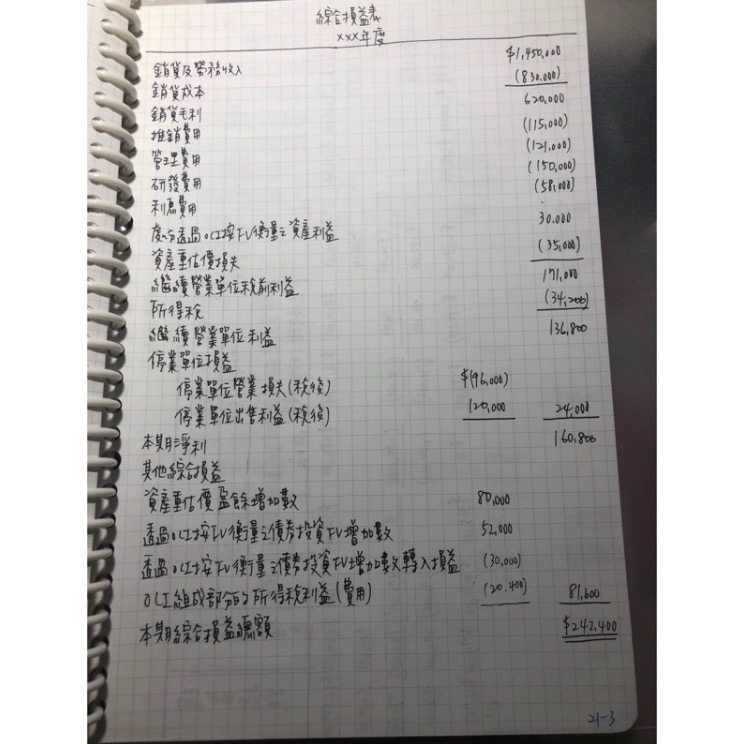 綜合損益表
XXX年度
銷貨及勞務收入 $1,450,000
銷貨成本 (830,000)
銷貨毛利 620,000
推銷費用 (115,000)
管理費用 (121,000)
研發費用 (150,000)
利息費用 (58,000)
處分透過OCI按FV衡量之資產利益 30,000
資產重估價損失 (35,000)
繼續營業單位稅前利益 171,000
所得稅 (34,200)
繼續營業單位利益 136,800
停業單位損益
停業單位營業損失(稅後) $(96,000)
停業單位出售利益(稅後) 120,000 24,000
本期淨利 160,800
其他綜合損益
資產重估價盈餘增加數 80,000
透過OCI按FV衡量之債券投資FV增加數 52,000
透過OCI按FV衡量之債券投資FV增加數轉入損益 (30,000)
OCI組成部分的所得稅利益(費用) (20,400) 81,600
本期綜合損益總額 $242,400
21-3